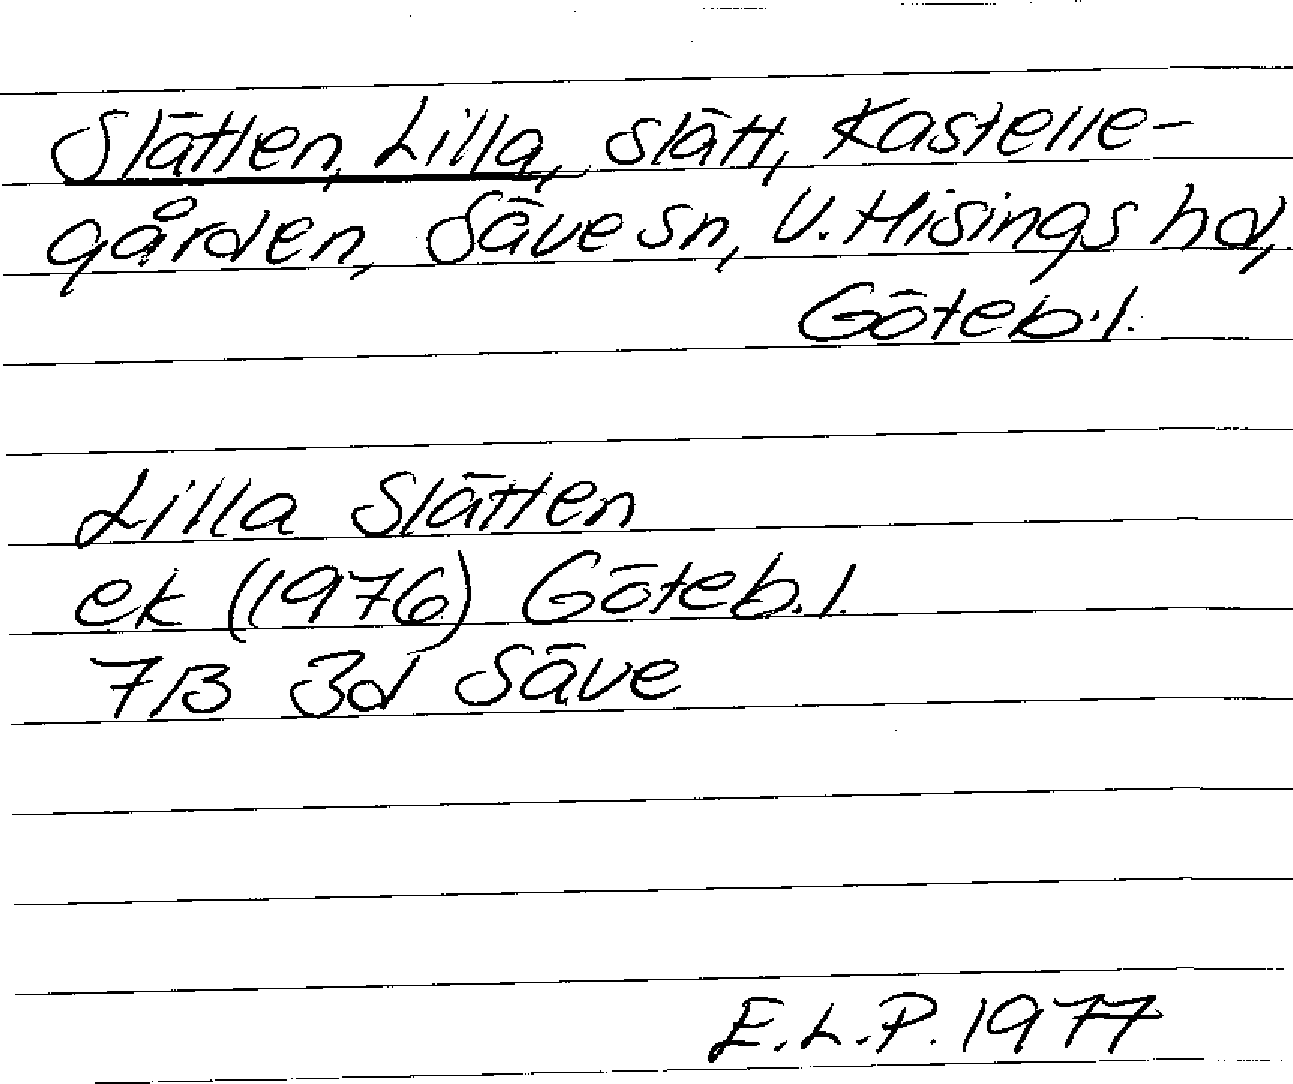 Slätten, Lilla, slätt, Kastelle-
gården, Säve sn, V. Hisings hd,
Göteb. l.
Lilla Slätten
ek (1976) Göteb. l.
7B 3d Säve
E.L.P. 1977